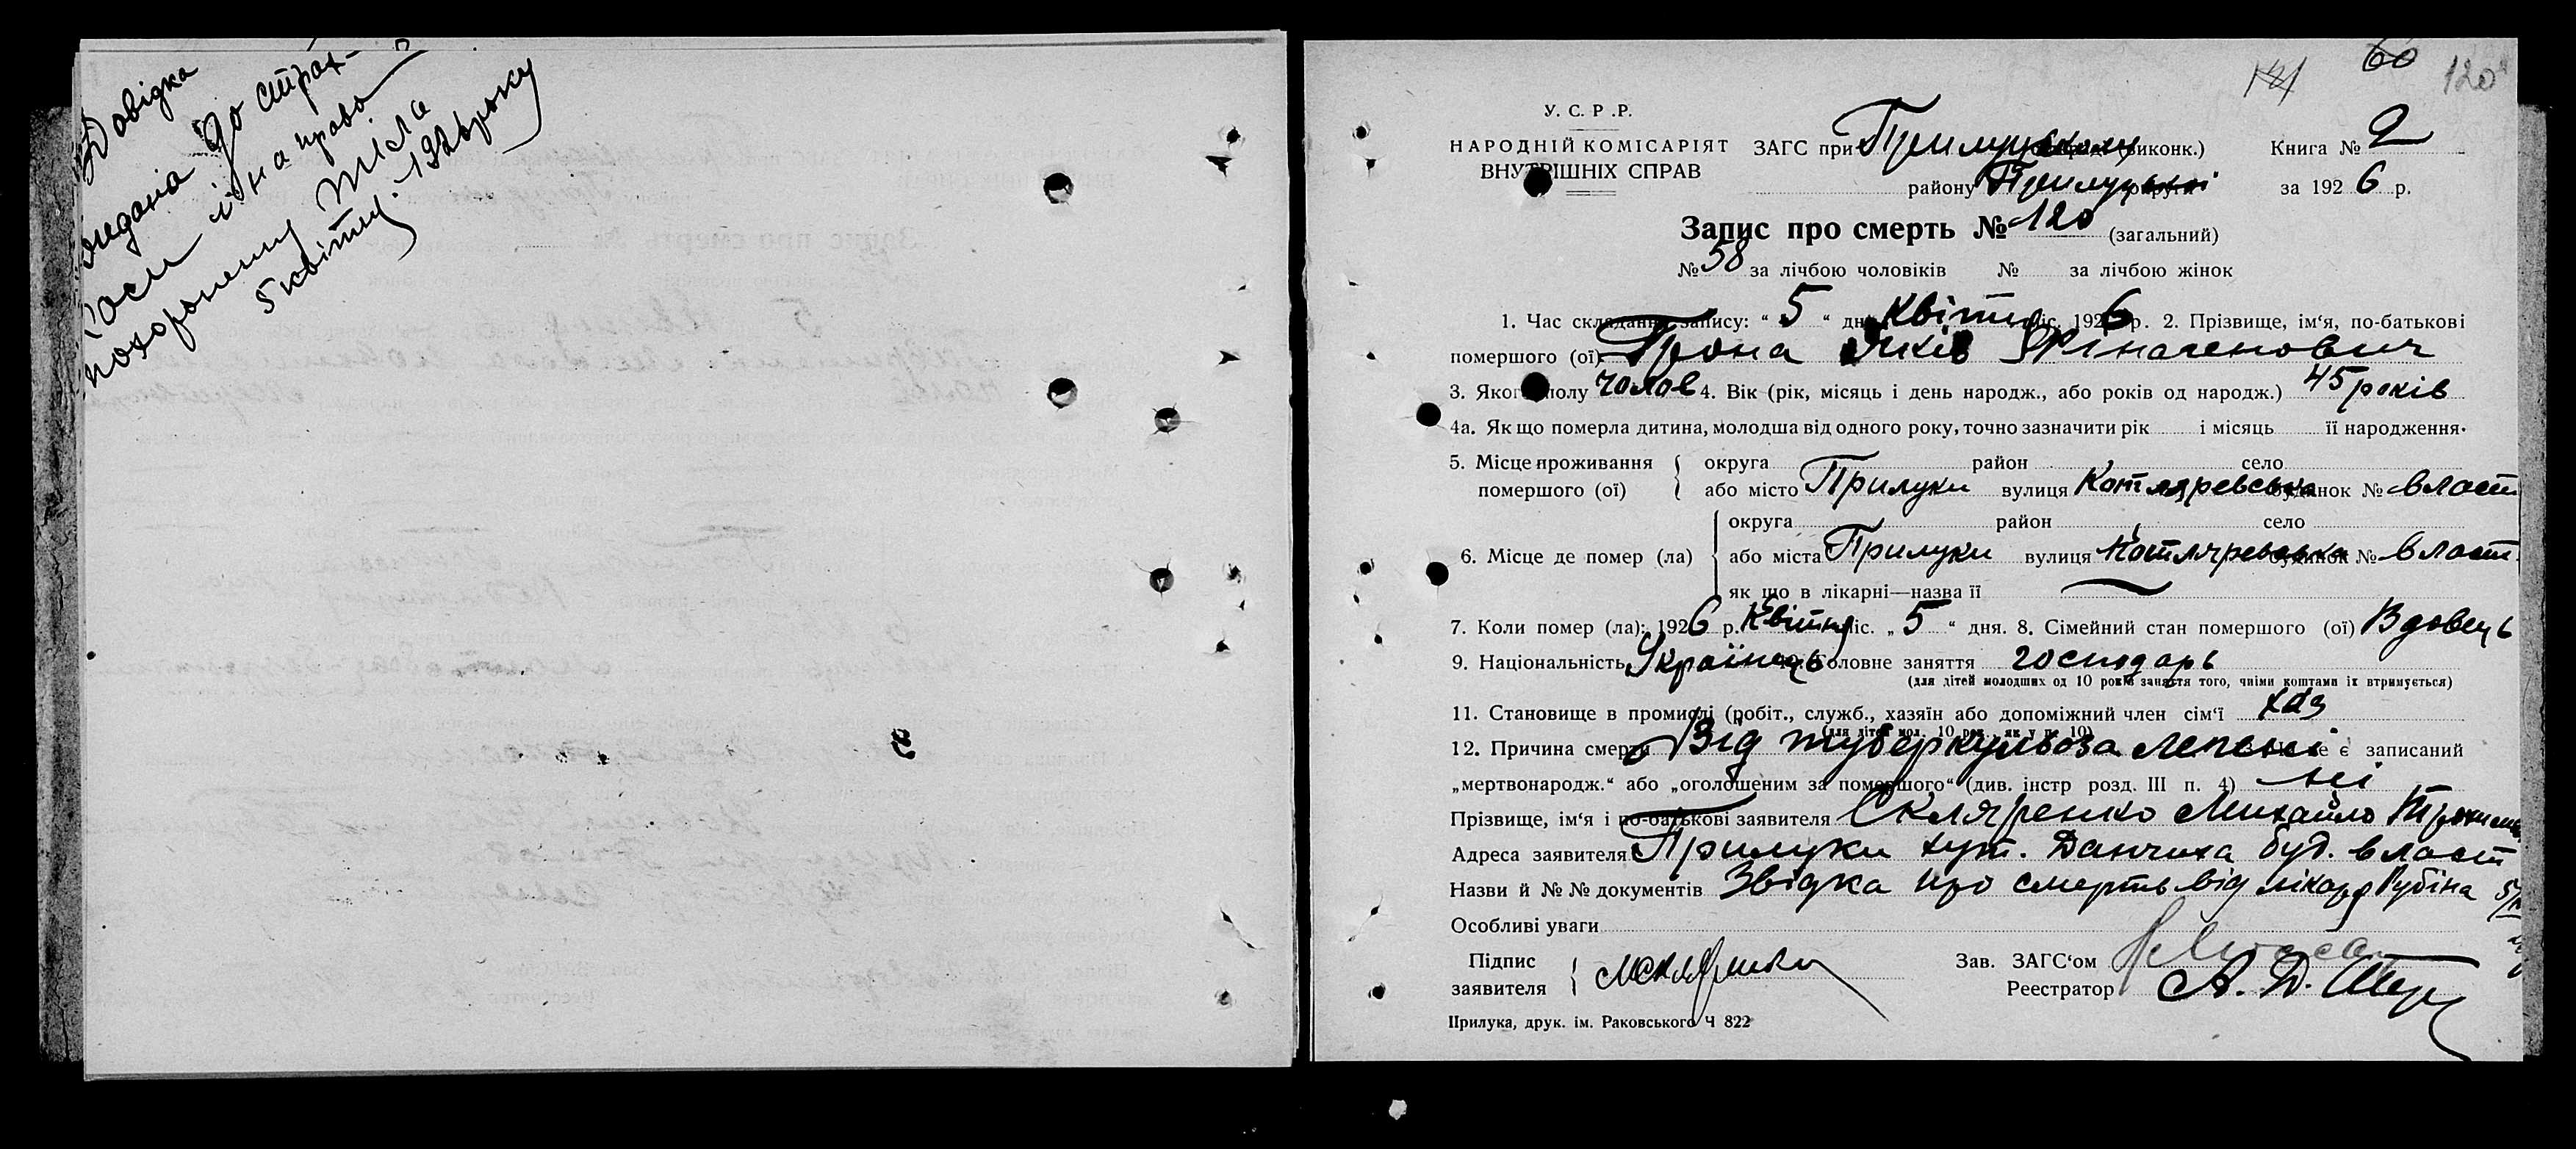 Довідка
видана до страх-
каси і на право
похорону тіла
5 квітня 1926 року
60
120
У. С. Р .Р.
НАРОДНІЙ КОМІСАРІЯТ
ВНУТРІШНІХ СПРАВ
ЗАГС при Прилуцькому виконк.)
району Прилуцької округи
Книга № 2
за 1926 р.
Запис про смерть № 120 (загальний)
№ 58 за лічбою чоловіків № за лічбою жінок
1. Час складання запису: “ 5 “ дн. Квітня міс. 1926 р. 2. Прізвище, ім‘я, по-батькові
помершого (ої) Яків
3. Якого полу чолов 4. Вік (рік, місяць і день народж., або років од народж.) 45 років
4а. Як що померла дитина, молодша від одного року, точно зазначити рік і місяць її народження.
5. Місце проживання помершого (ої) { округа район село
або місто Прилуки вулиця Котляревська будинок № власн
6. Місце де помер (ла) { округа район село
або міста Прилуки вулиця Котляревська будинок № власн.
як що в лікарні—назва її
7. Коли помер (ла): 1926 р. Квітня міс. „ 5 “ дня. 8. Сімейний стан помершого (ої) Вдовець
9. Національність Українець 10. Головне заняття господарь
(для дітей молодших од 10 років заняття того, чиїми коштами їх втримується)
11. Становище в промислі (робіт., служб., хазяїн або допоміжний член сім‘ї хаз
(для дітей мол. 10 рок., як у п. 10)
12. Причина смерти Від туберкульоза легені є записаний
„мертвонародж.“ або „оголошеним за помершого“ (див. інстр розд. III п. 4) ні
Прізвище, ім‘я і по-батькові заявителя Скляренко Михайло
Адреса заявителя Прилуки хут. буд. власн
Назви й №№ документів Звідка про смерть від лікаря Рубіна
Особливі уваги
Підпис заявителя {
Зав. ЗАГС‘ом
Реестратор А. Д.
Прилука, друк. ім. Раковського Ч 822